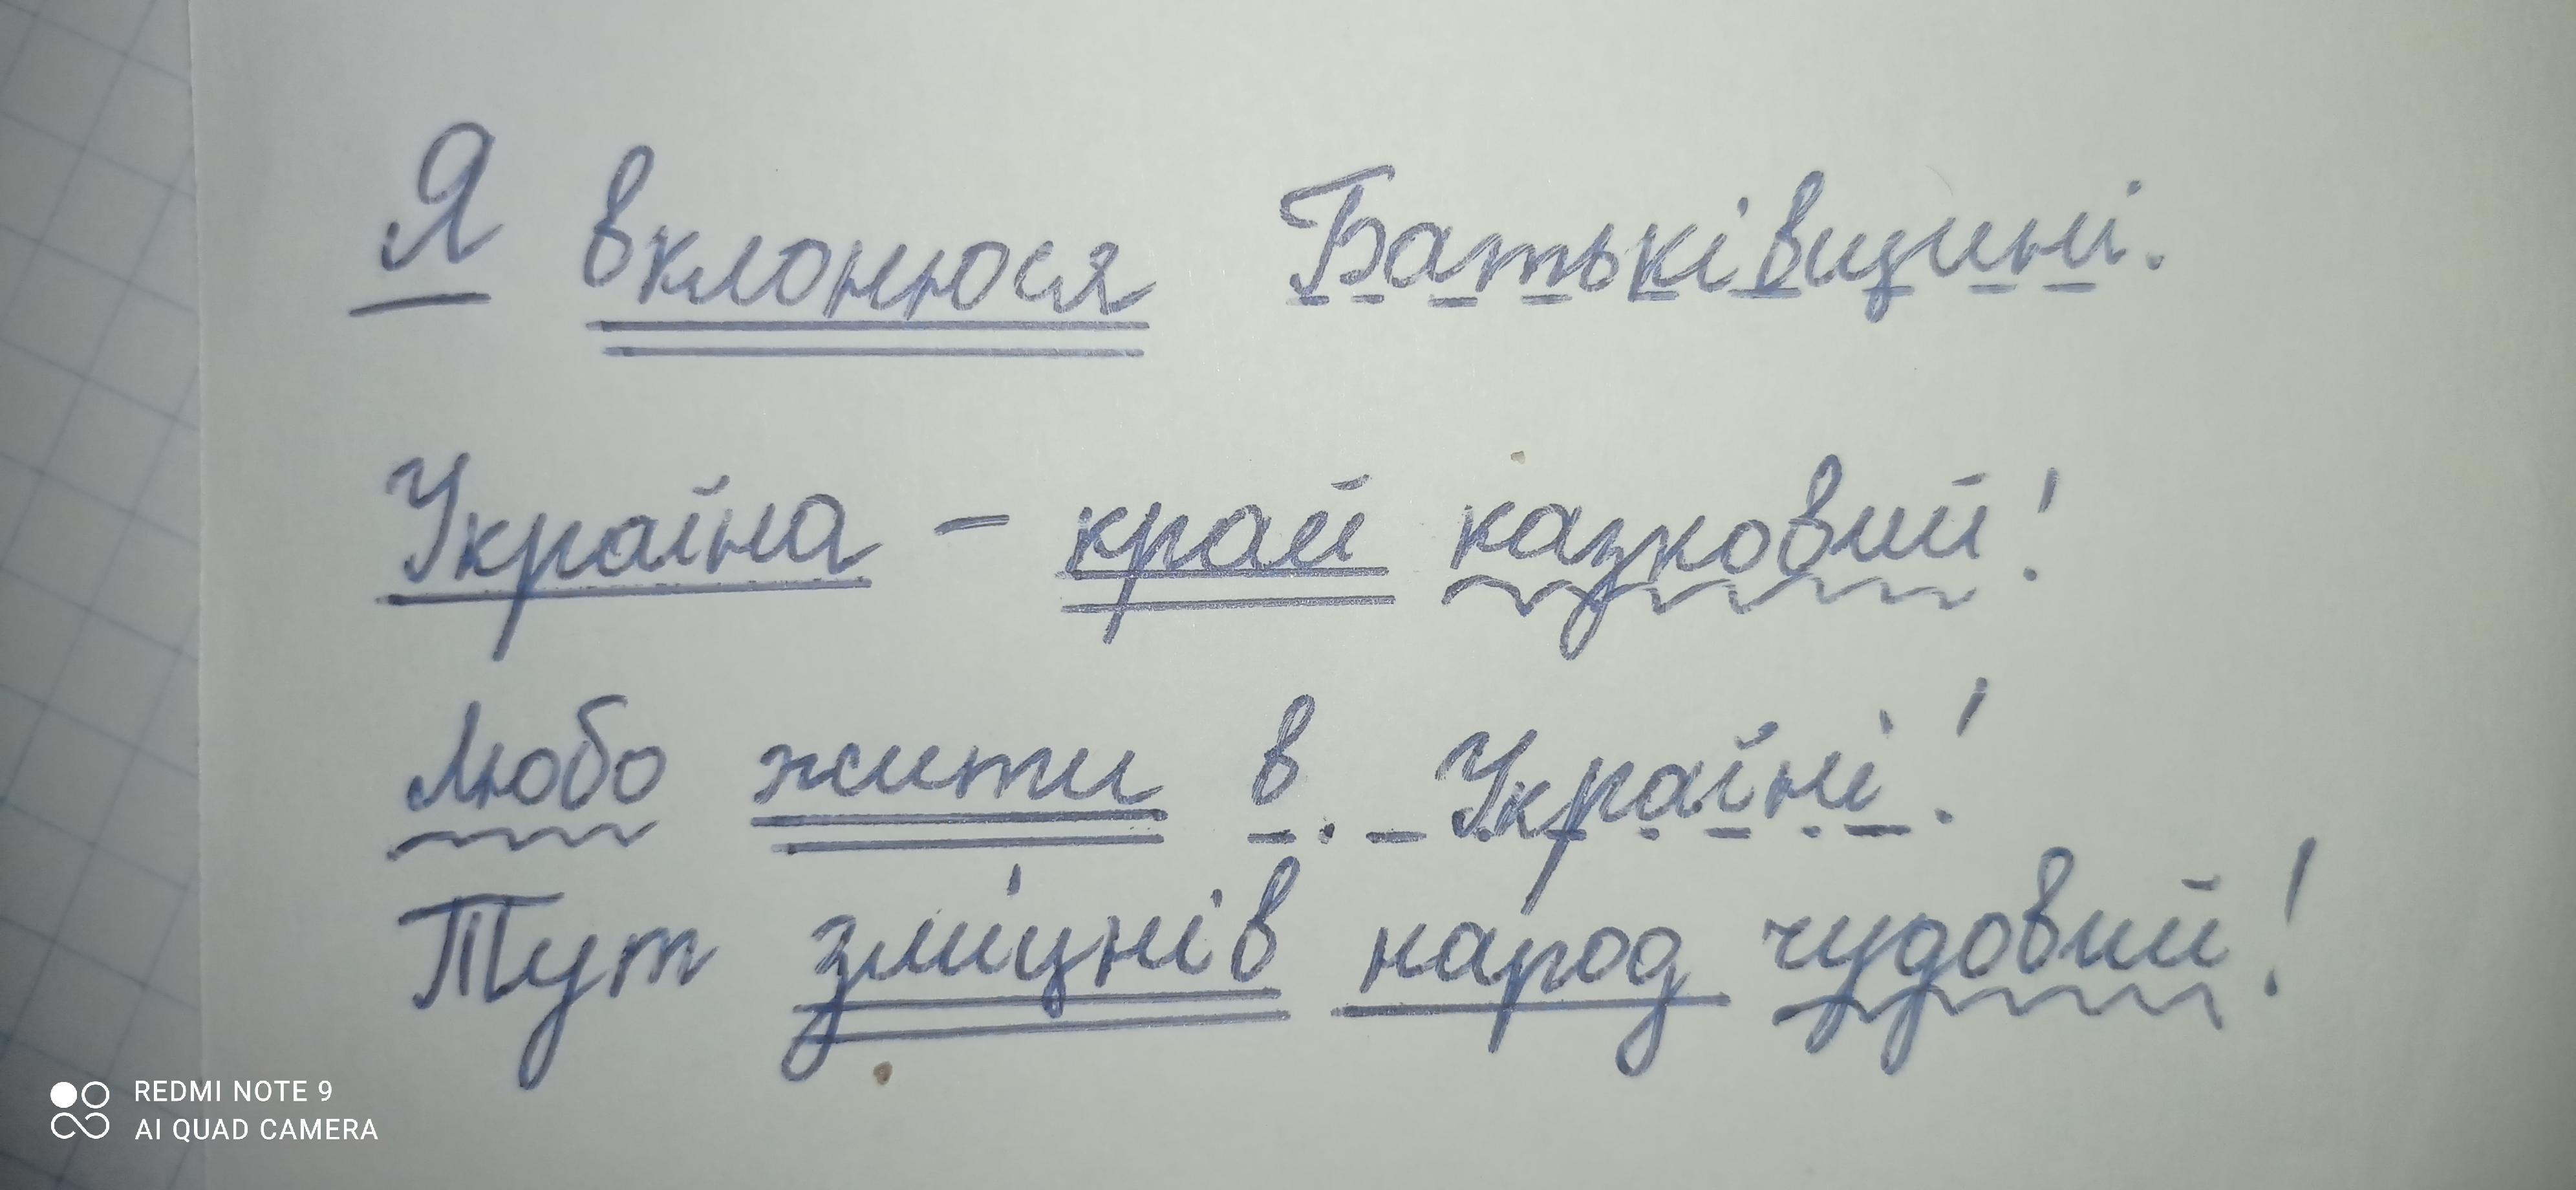 Я вклонюся Батьківщині.
Україна - край казковий!
Любо жити в Україні!
Тут зміцнів народ чудовий!
REDMI NOTE 9
AI QUAD CAMERA